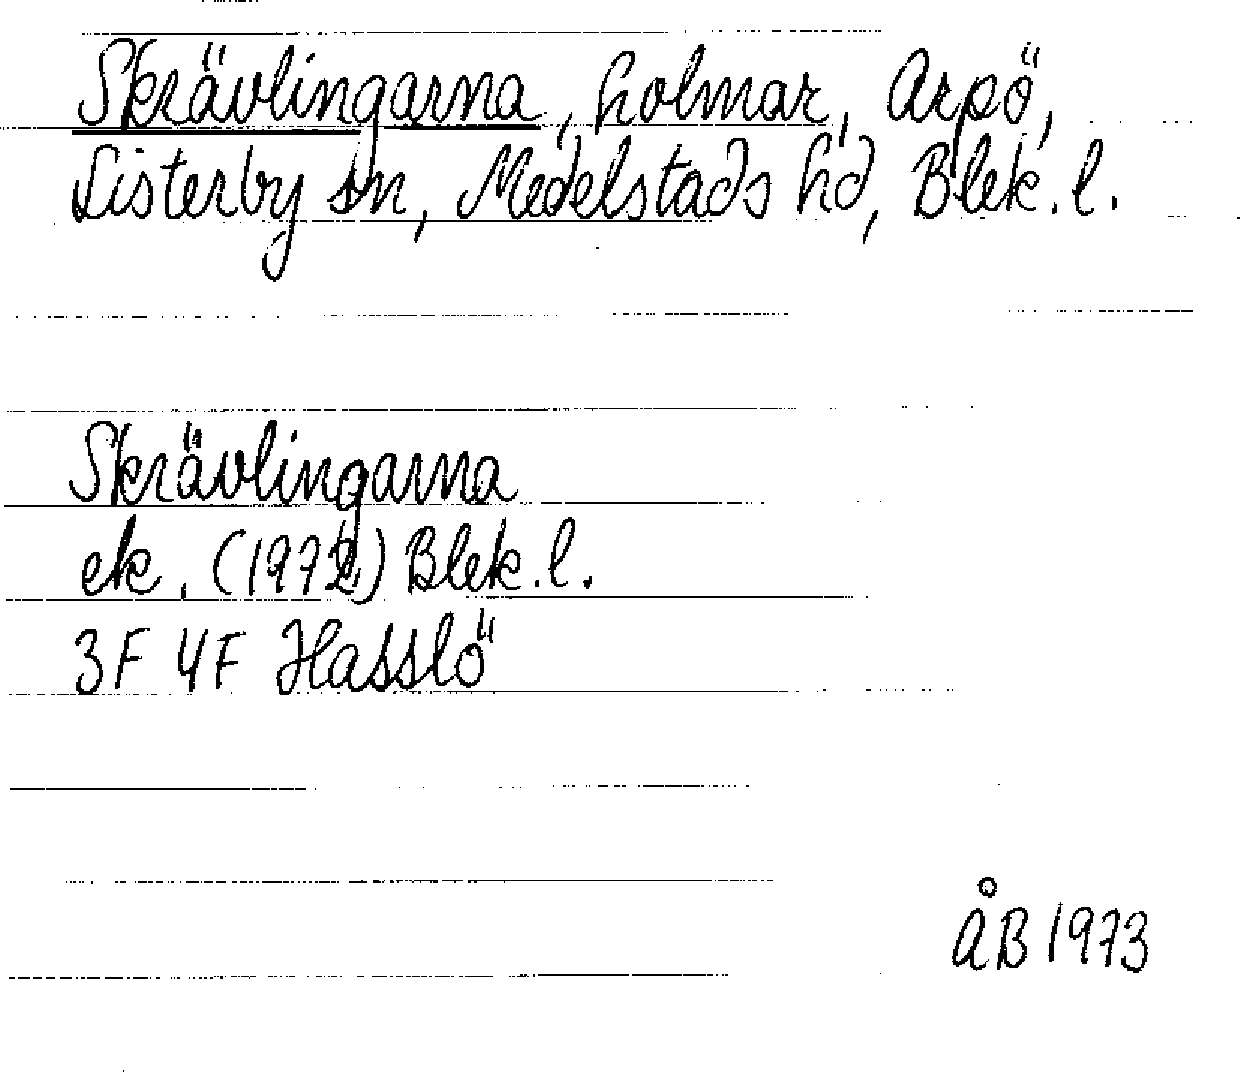 Skrävlingarna, holmar, Arpö,
Listerby sn, Medelstads hd, Blek. l.
Skrävlingarna
ek. (1972) Blek. l.
3F 4F Hasslö
ÅB 1973